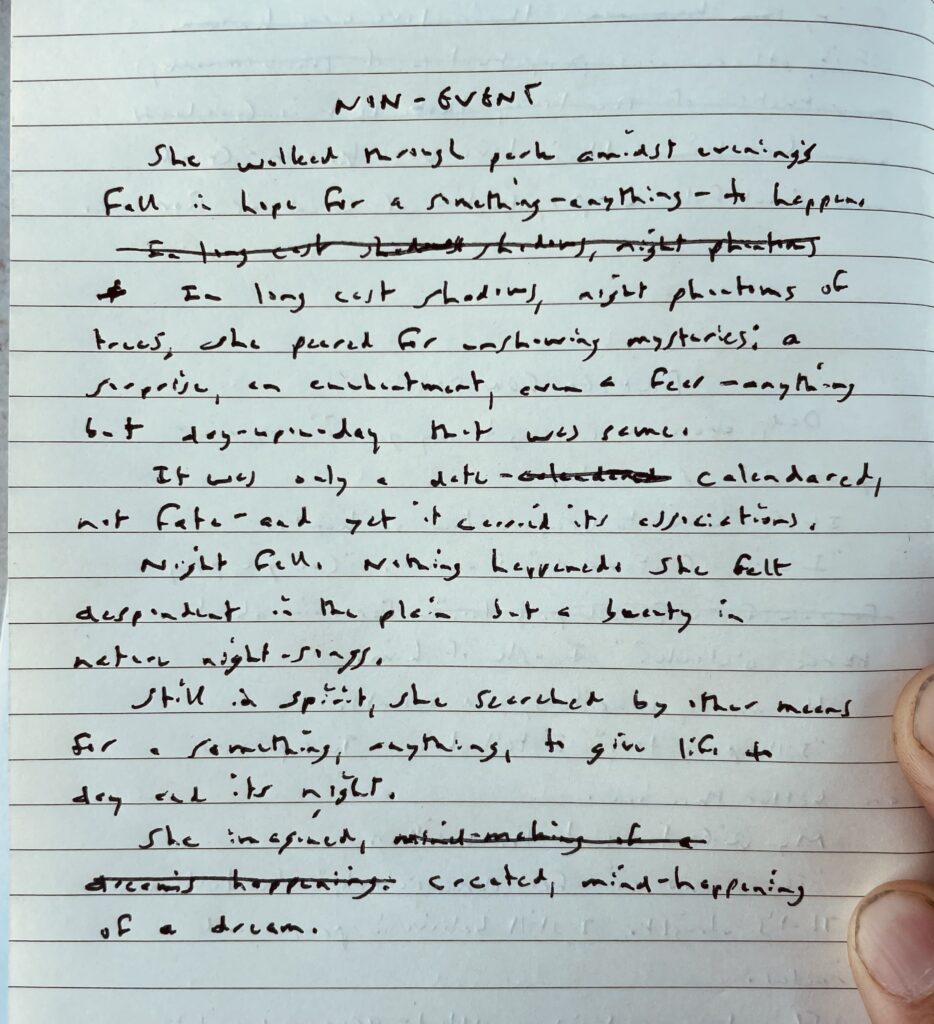 NON-EVENT
She walked through park amidst evening's
fall in hope for a something-anything-to happen.
In long cast shadows, night phantoms
In long cast shadows, night phantoms of
trees, she peered for unshowing mysteries; a
surprise, an enchantment, even a fear-anything
but day-upon-day that was same.
It was only a date-calendared calendared,
not fate-and yet it carried its associations.
Night fell. Nothing happened. She felt
despondent in the plain but a beauty in
nature night-sings.
Still in spirit, she searched by other means
for a something, anything, to give life to
day and its night.
She imagined, mind-making of a
dream's happening. created, mind-happening
of a dream.